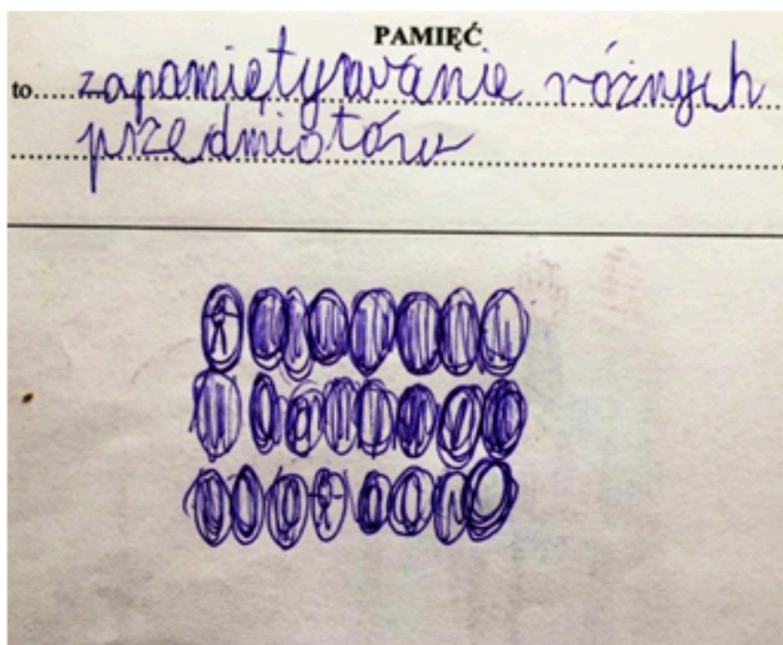 PAMIĘĆ
to.....zapamiętywanie różnych
przedmiotów